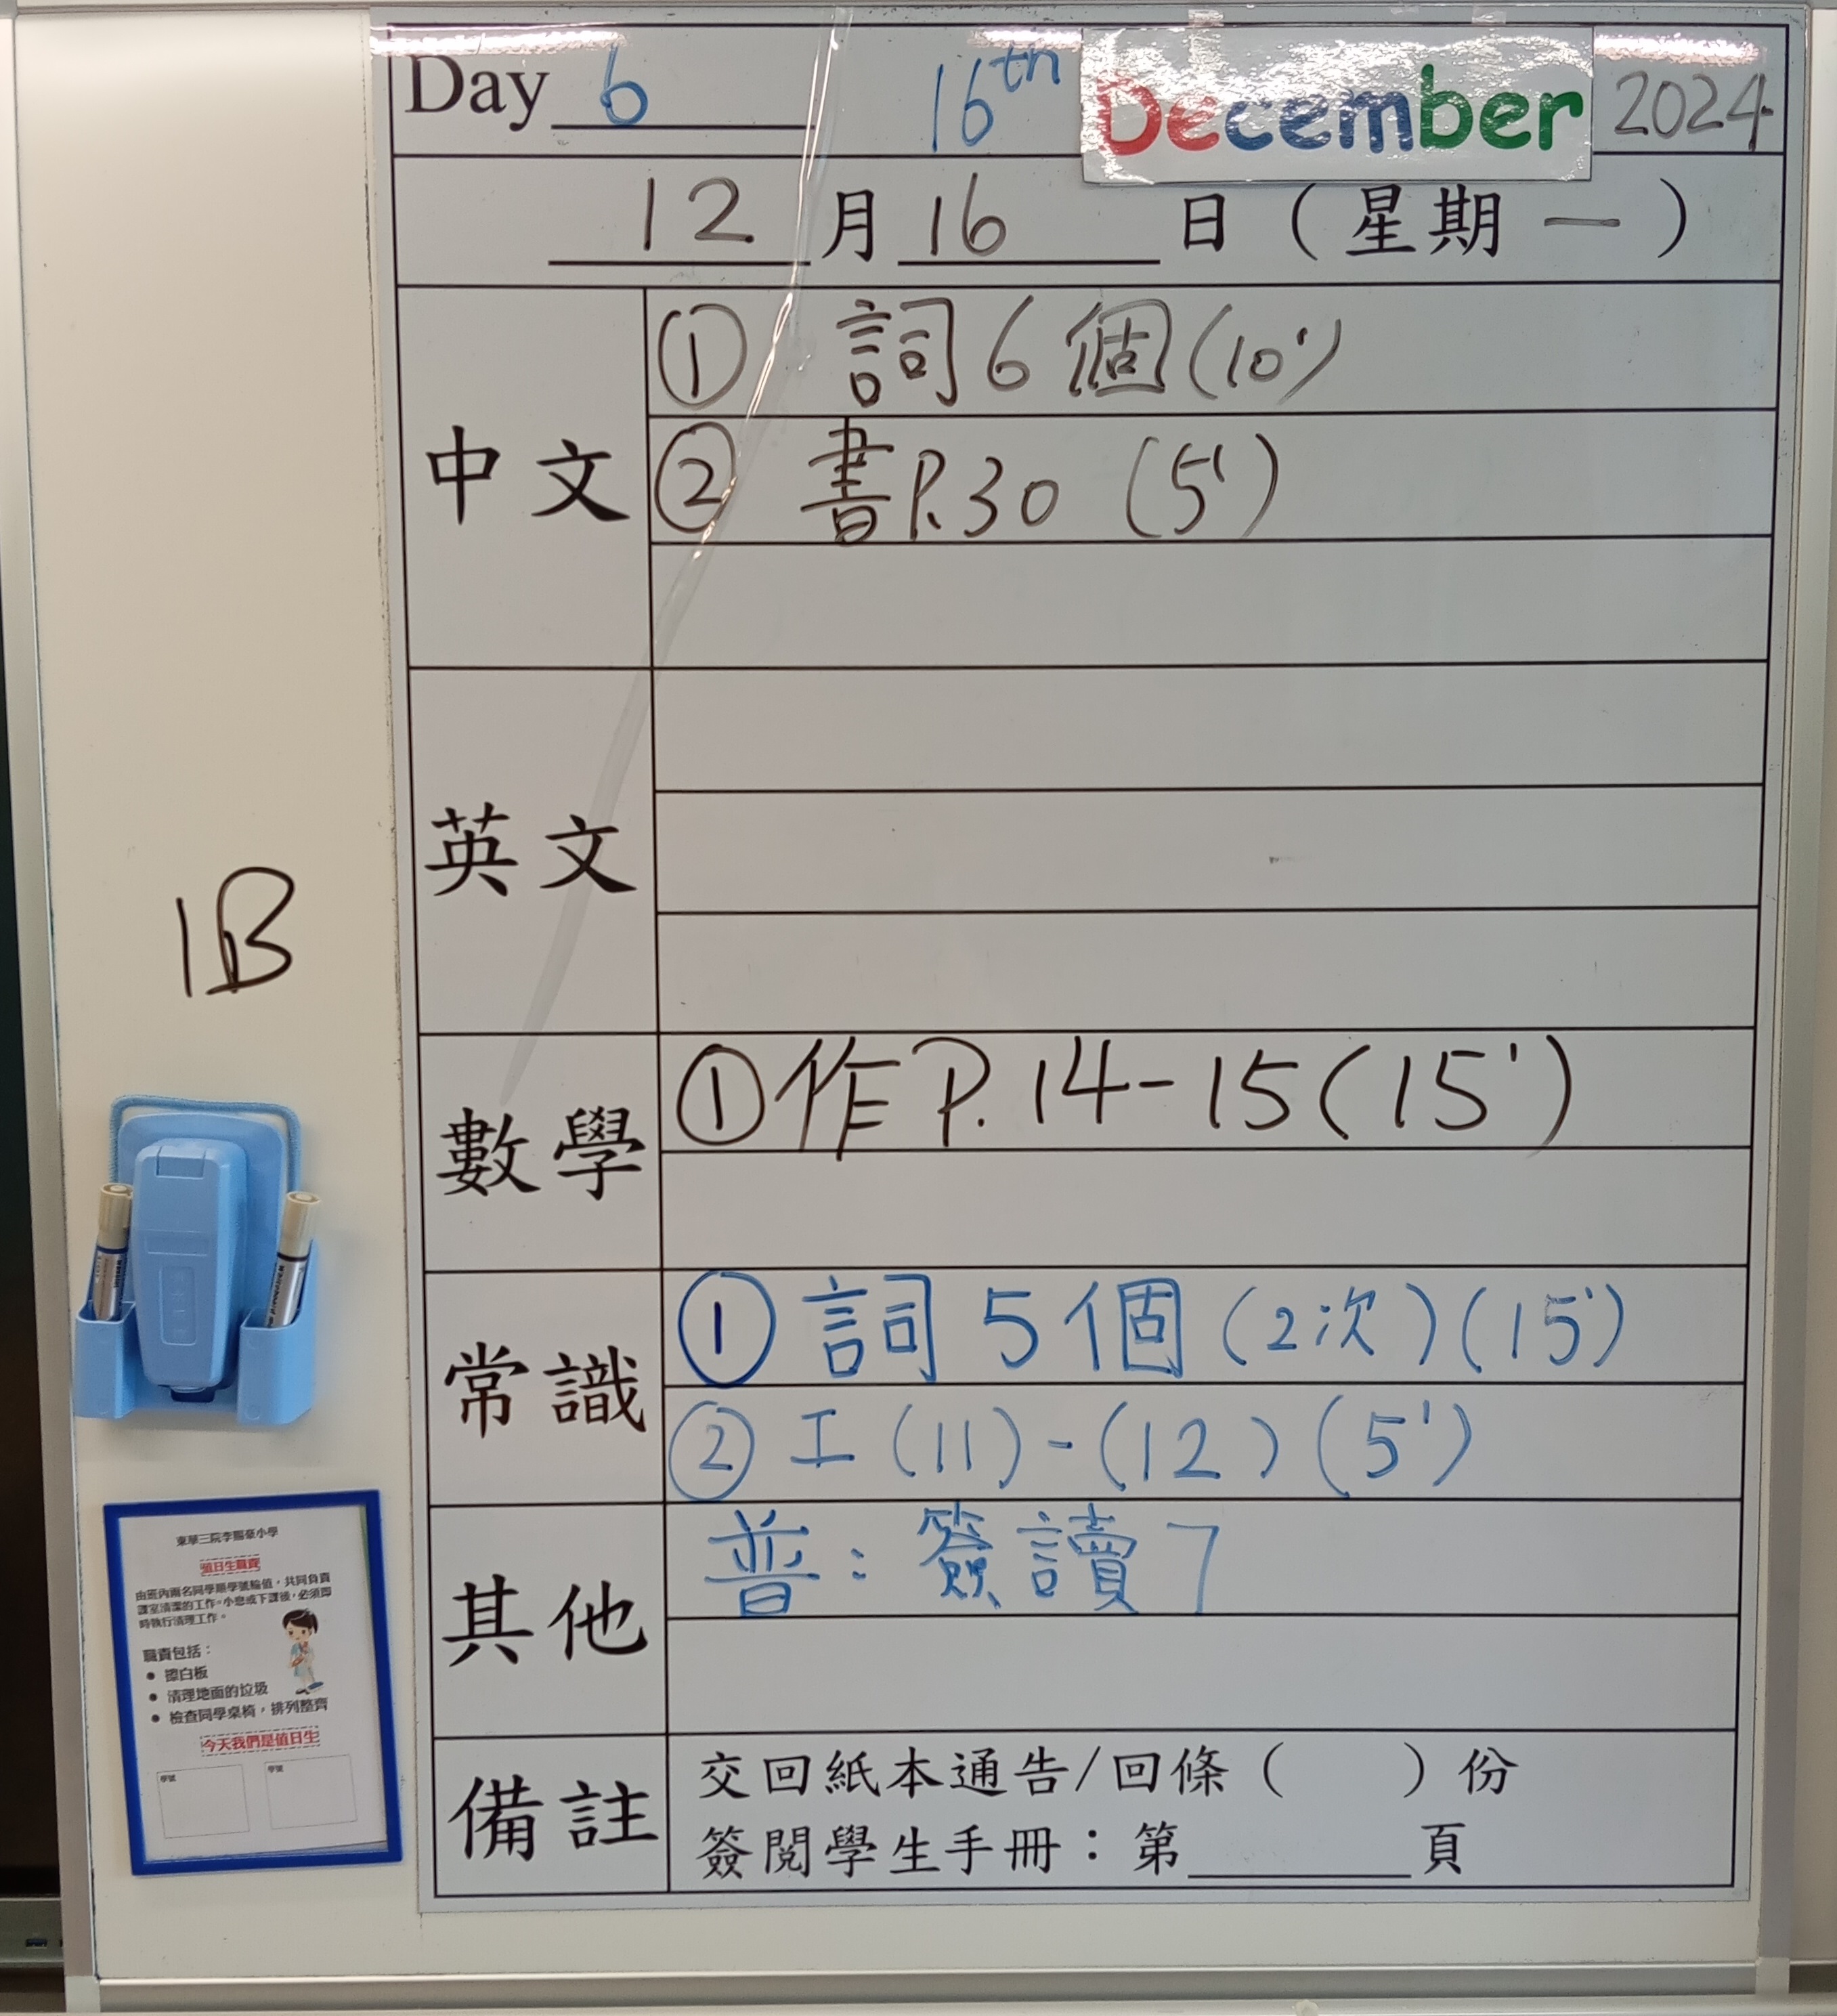 Day 6 16th December 2024
12 月 16 日（星期一）
中文
① 詞6個(10')
② 書P.30 (5')
英文
數學
① 作P.14-15(15')
常識
① 詞5個(2次)(15')
② 工(11)-(12)(5')
其他
普：簽讀7
備註
交回紙本通告/回條（ ）份
簽閱學生手冊：第______頁
1B
東華三院李賜豪小學
值日生職責
由班內兩名同學順學號輪值，共同負責
課室清潔的工作。小息或下課後，必須即
時執行清理工作。
職責包括：
● 擦白板
● 清理地面的垃圾
● 檢查同學桌椅，排列整齊
今天我們是值日生
學號 學號